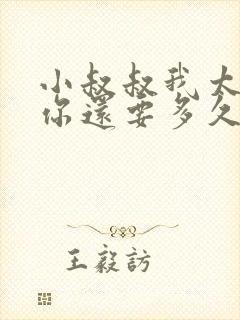 小叔叔我大
你還要多久
王毅訪